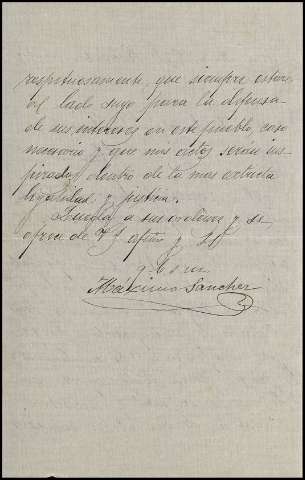 respetuosamente, que siempre estare
al lado suyo para la defensa
de sus intereses en este pueblo, caso
necesario y que mis actos seran ins
pirados dentro de la mas estricta
legalidad y justicia.
Queda a sus ordenes y se
ofrece de V. S. afmo y S. S.
q. b. s. m.
Máximo Sanchez